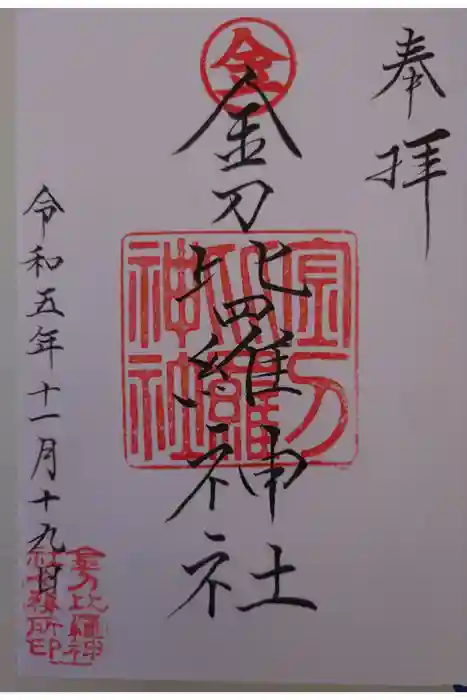 奉拝
金
金刀比羅神社
金刀比羅神社
令和五年十一月十九日
金刀比羅神
社社務所印